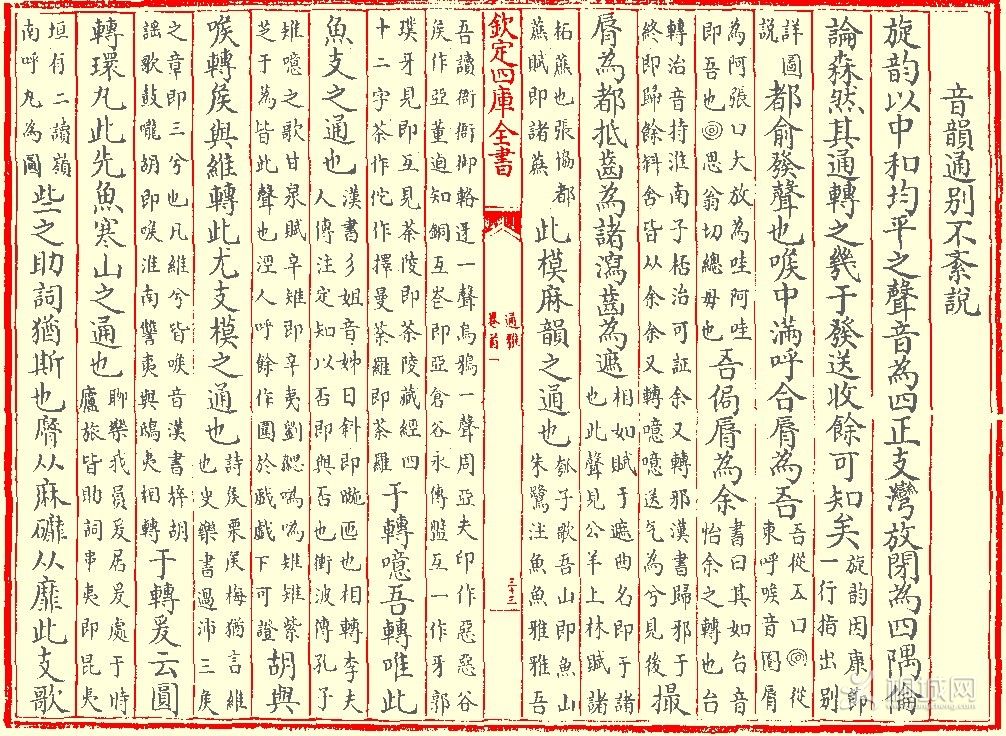 音韻通别不紊說
旋韵以中和均平之聲音為四正支灣放閉為四隅備
論森然其通轉之幾于發送收餘可知矣
旋韵因康節
一行指出别
詳圖
說
都俞發聲也喉中滿呼合脣為吾
吾從五口◎從
東呼喉音圈脣
為阿張口大放為哇阿哇
即吾也◎思翁切總毋也
吾偈脣為余
書曰其如台音
怡余之轉也台
轉治音持淮南子栝治可証余又轉邪漢書歸邪于
終即歸餘斜舍皆从余余又轉噫噫送气為兮見後
撮
脣為都抵齒為諸瀉齒為遮
相如賦于遮曲名即于諸
也此聲見公羊上林賦諸
柘蔗也張協都
蔗賦即諸蔗
此模麻韻之通也
瓠子歌吾山即魚山
朱鷺注魚魚雅雅吾
欽定四庫全書
通雅
卷首一
三十三
吾讀衙衙御輅逆一聲烏鴉一聲周亞夫印作惡惡谷
矦作亞董逌知銅互峇即亞倉谷永傳盤互一作牙郭
璞牙見即互見荼陵即茶陵藏經四
十二字荼作佗作擇曼荼羅即茶羅
于轉噫吾轉唯此
魚支之通也
漢書彡姐音姊日斜即暆匜也相轉李夫
人傳注定知以否即與否也衝波傳孔子
雉噫之歌甘泉賦辛雉即辛夷劉勰嗚嗚雉雉紫
芝于為皆此聲也涇人呼餘作圓於戯戯下可證
胡與
喉轉矦與維轉此尤支模之通也
詩矦栗矦梅猶言維
也史樂書過沛三矦
之章即三兮也凡維兮皆喉音漢書梓胡
謡歌鼓嚨胡即喉淮南讐夷與鴟夷相轉
于轉爰云圓
轉環丸此先魚寒山之通也
聊樂我員爰居爰處于時
廬旅皆助詞串夷即昆夷
垣有二讀嶺
南呼丸為圓
些之助詞猶斯也磨从麻礳从靡此支歌